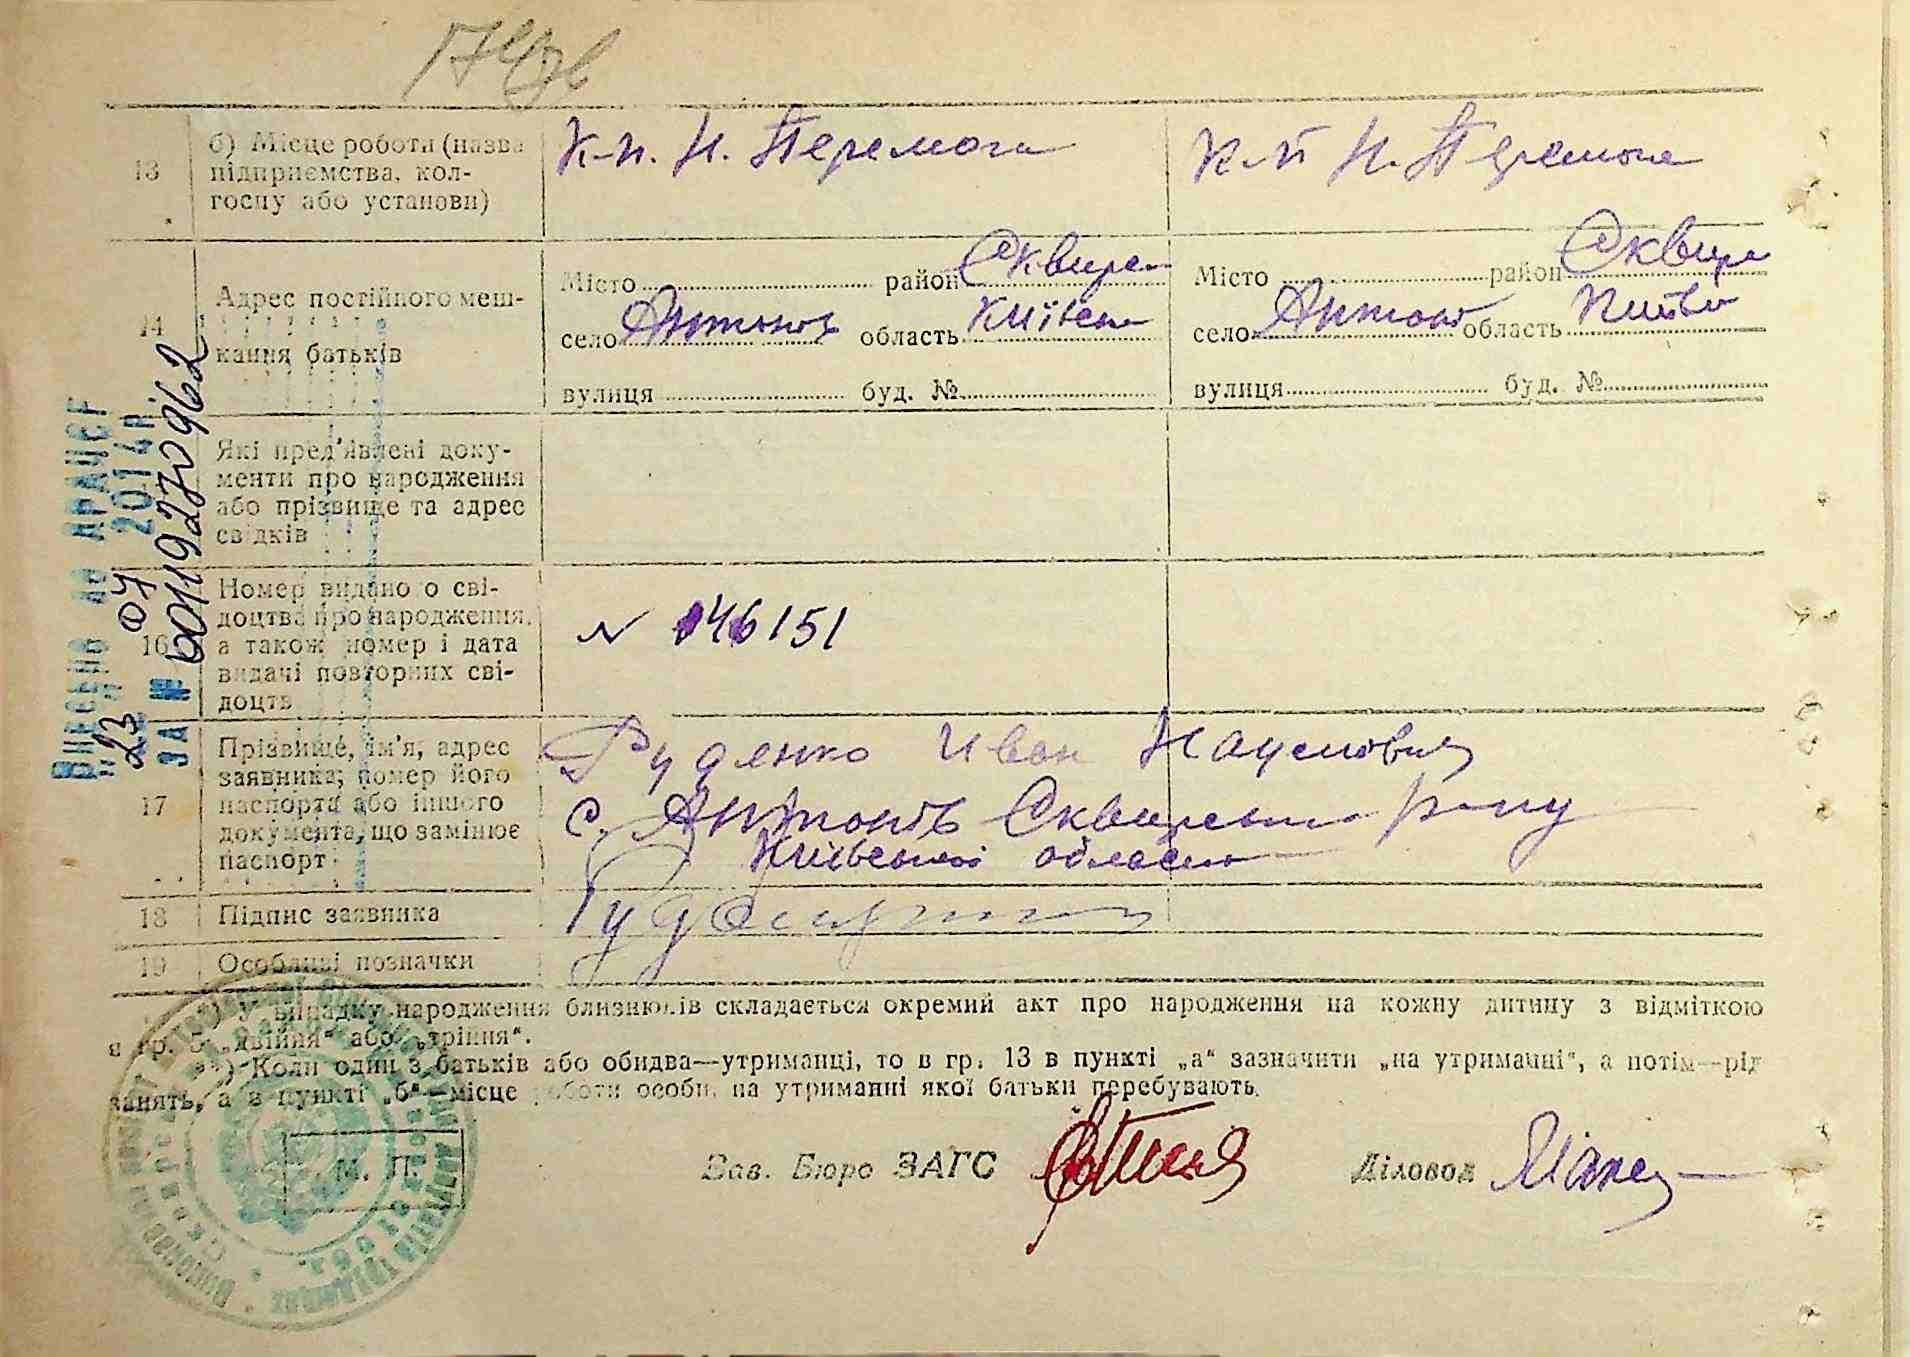 13
б) Місце роботи (назва
підприємства, кол-
госпу або установи)
К-п. Н. Перемога
К-п Н. Перемога
14
Адрес постійного меш-
кання батьків
Місто район Сквирс
село Антонів область Київськ
вулиця буд. №
Місто район Сквир
село Антонів область Київ
вулиця буд. №
Які пред'явлені доку-
менти про народження
або прізвище та адрес
свідків
16
Номер видано о сві-
доцтва про народження,
а також номер і дата
видачі повторних сві-
доцтв
N 046151
17
Прізвище, ім'я, адрес
заявника; номер його
паспорта або іншого
документа, що замінює
паспорт
Руденко Иван Наумович
с. Антонів Сквирськ р-ну
Київської області
18
Підпис заявника
19
Особливі позначки
*) У випадку народження близнюків складається окремий акт про народження на кожну дитину з відміткою
в гр. 5 „двійня“ або „трійня“.
**) Коли один з батьків або обидва—утриманці, то в гр. 13 в пункті „а“ зазначити „на утриманні“, а потім—рід
занять, а в пункті „б“—місце роботи особи, на утриманні якої батьки перебувають.
М. П.
Зав. Бюро ЗАГС
Діловод
Внесено до ДРАЦСГ
"23" 07 2014 р.
ЗА № 00119270962